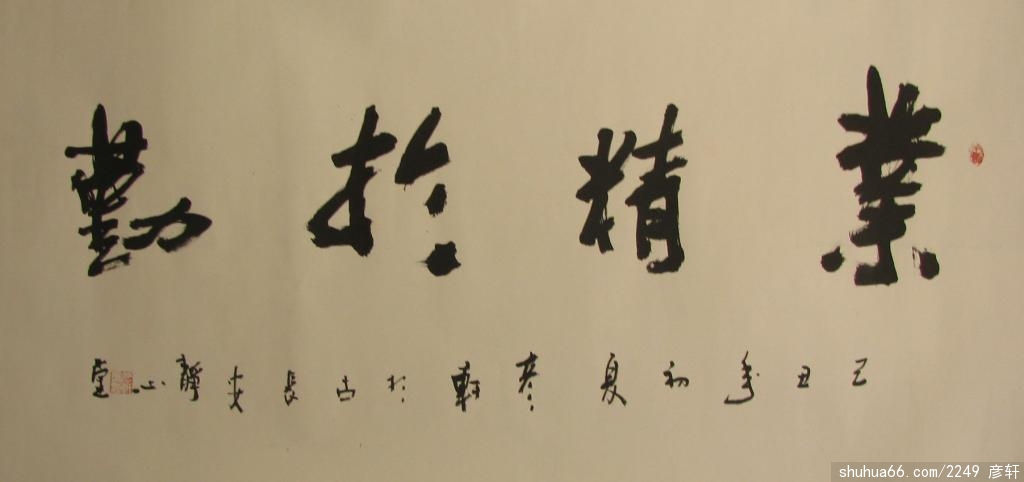 業精於勤
己丑年初夏彦軒於古長安靜心堂
shuhua66.com/2249 彦轩